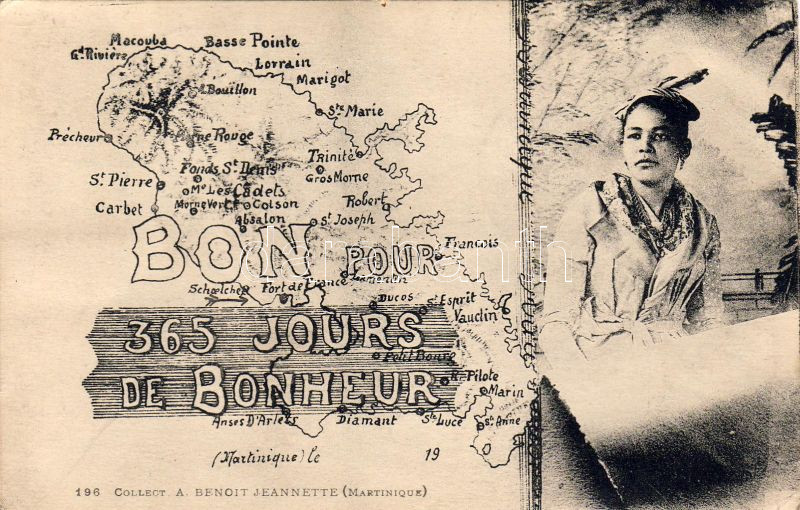 Macouba
Basse Pointe
Gd. Rivière
Lorrain
Marigot
Mt. Bouillon
Ste Marie
Prêcheur
Rouge
Trinité
Fonds St. Denis
Gros Morne
St. Pierre
Mt. Les Cadets
Robert
Carbet
Morne Vert
Colson
Absalon
St Joseph
BON POUR
François
Schœlcher
Fort de France
Lamentin
Ducos
St. Esprit
Vauclin
365 JOURS
Petit Bourg
DE BONHEUR
R. Pilote
Marin
Anses D'Arlet
Diamant
Ste Luce
St. Anne
(Martinique) le 19
196 COLLECT. A. BENOIT JEANNETTE (MARTINIQUE)
darabanth